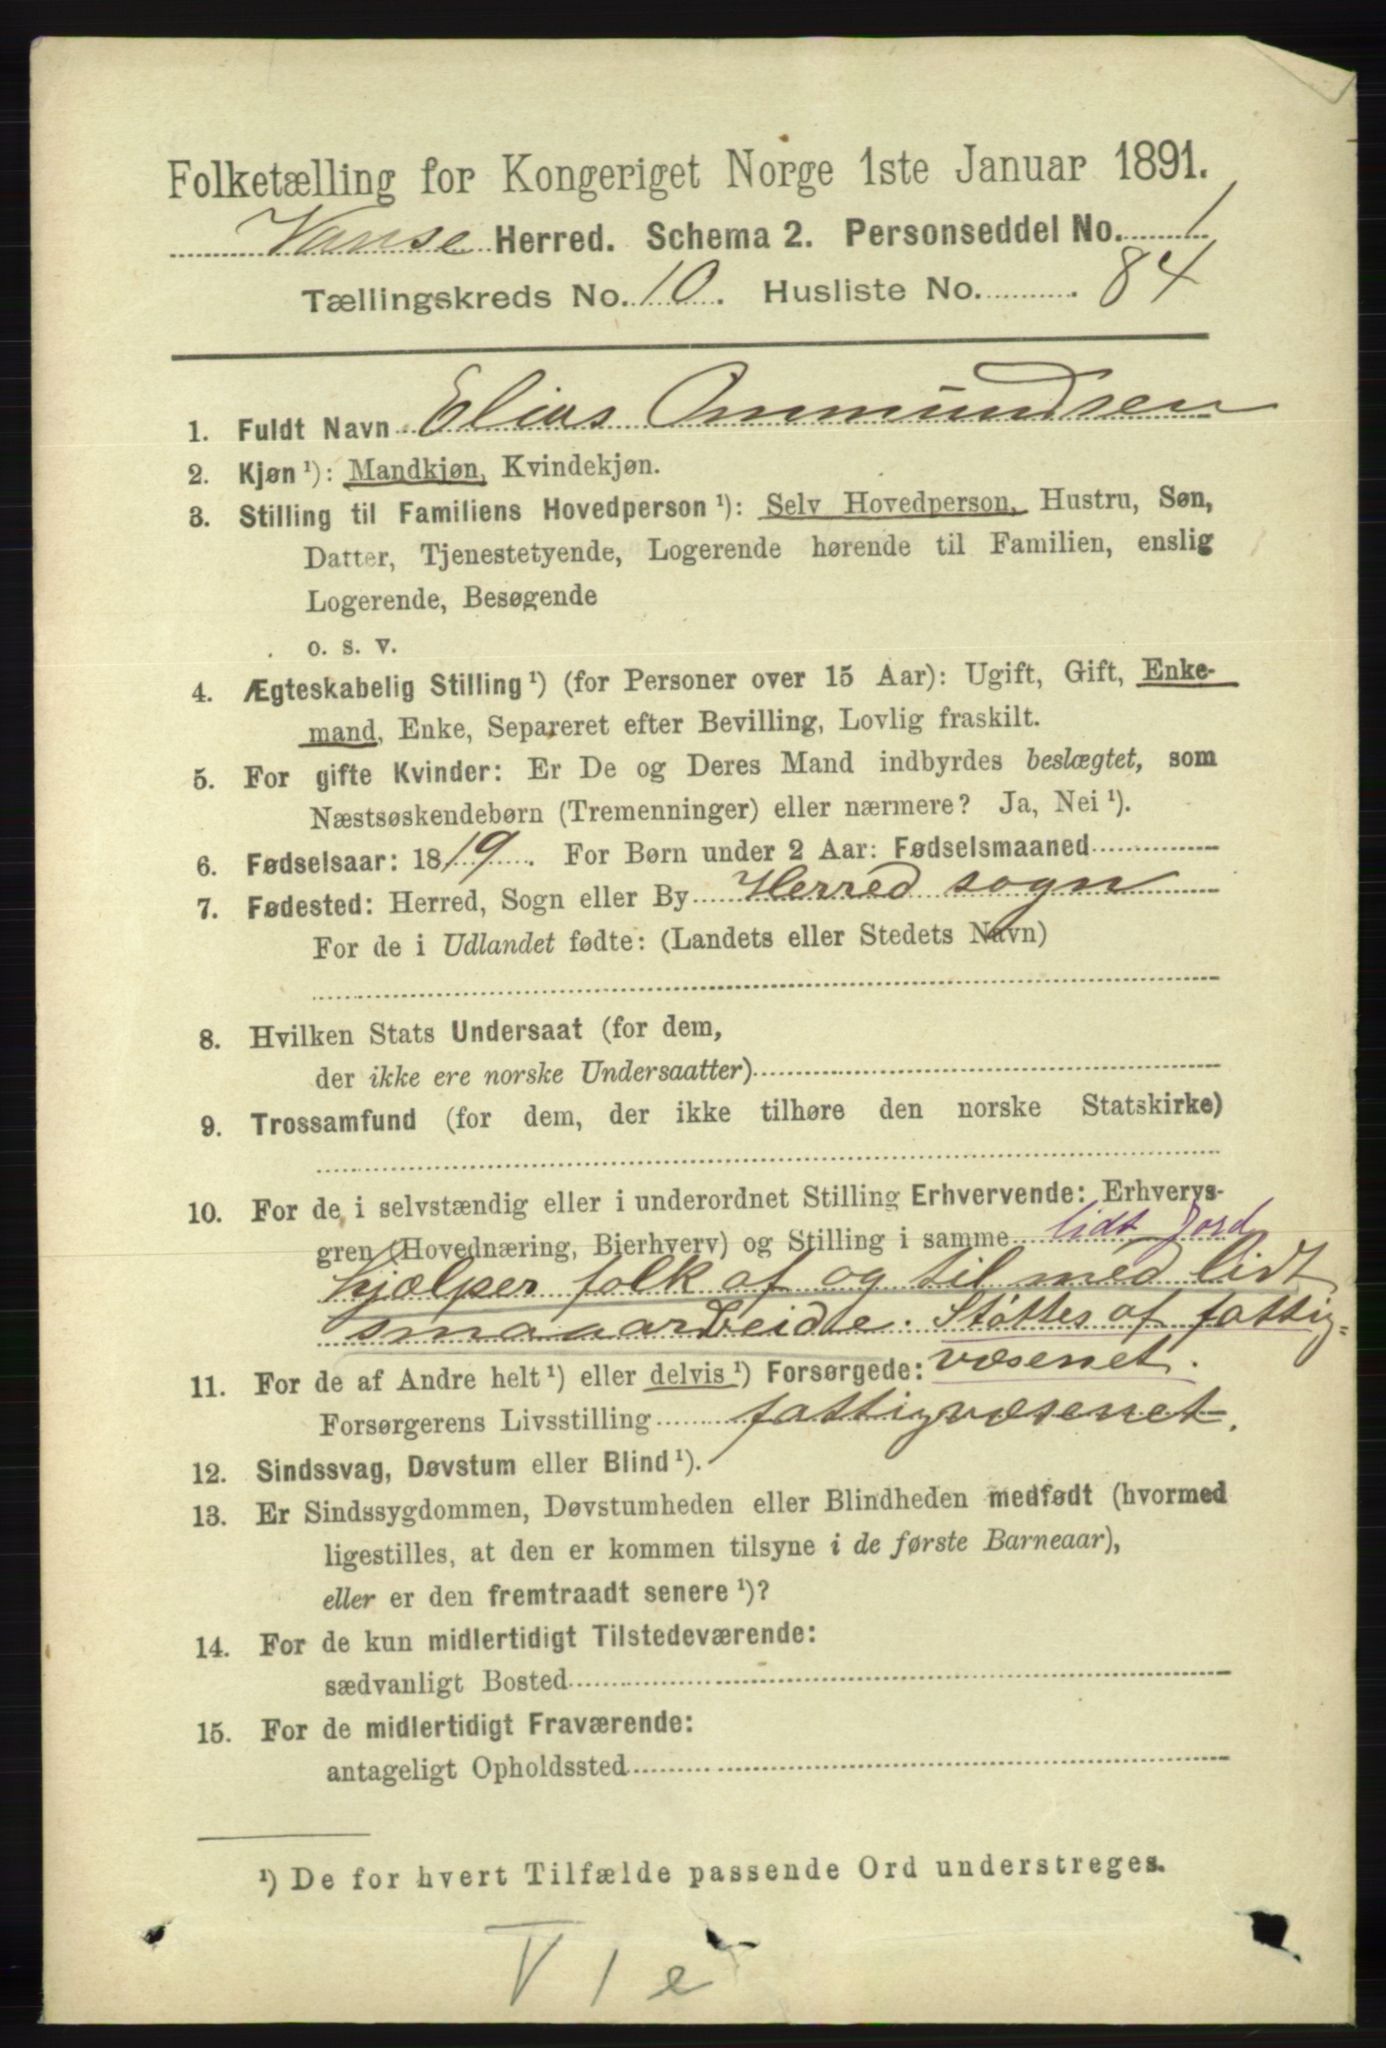 Folketælling for Kongeriget Norge 1ste Januar 1891.
Vanse Herred. Schema 2. Personseddel No. 1
Tællingskreds No. 10. Husliste No. 84
1. Fuldt Navn Elias Ommundsen
2. Kjøn ¹): Mandkjøn, Kvindekjøn.
3. Stilling til Familiens Hovedperson ¹): Selv Hovedperson, Hustru, Søn,
Datter, Tjenestetyende, Logerende hørende til Familien, enslig
Logerende, Besøgende
o. s. v.
4. Ægteskabelig Stilling ¹) (for Personer over 15 Aar): Ugift, Gift, Enke-
mand, Enke, Separeret efter Bevilling, Lovlig fraskilt.
5. For gifte Kvinder: Er De og Deres Mand indbyrdes beslægtet, som
Næstsøskendebørn (Tremenninger) eller nærmere? Ja, Nei ¹).
6. Fødselsaar: 1819. For Børn under 2 Aar: Fødselsmaaned
7. Fødested: Herred, Sogn eller By Herred sogn
For de i Udlandet fødte: (Landets eller Stedets Navn)
8. Hvilken Stats Undersaat (for dem,
der ikke ere norske Undersaatter)
9. Trossamfund (for dem, der ikke tilhøre den norske Statskirke)
10. For de i selvstændig eller i underordnet Stilling Erhvervende: Erhvervs-
gren (Hovednæring, Bierhverv) og Stilling i samme lidt Jord
hjælper folk af og til med lidt
smaaarbeide. Støttes af fattig-
væsenet.
11. For de af Andre helt ¹) eller delvis ¹) Forsørgede:
Forsørgerens Livsstilling fattigvæsenet.
12. Sindssvag, Døvstum eller Blind ¹).
13. Er Sindssygdommen, Døvstumheden eller Blindheden medfødt (hvormed
ligestilles, at den er kommen tilsyne i de første Barneaar),
eller er den fremtraadt senere ¹)?
14. For de kun midlertidigt Tilstedeværende:
sædvanligt Bosted
15. For de midlertidigt Fraværende:
antageligt Opholdssted
¹) De for hvert Tilfælde passende Ord understreges.
V 1 e